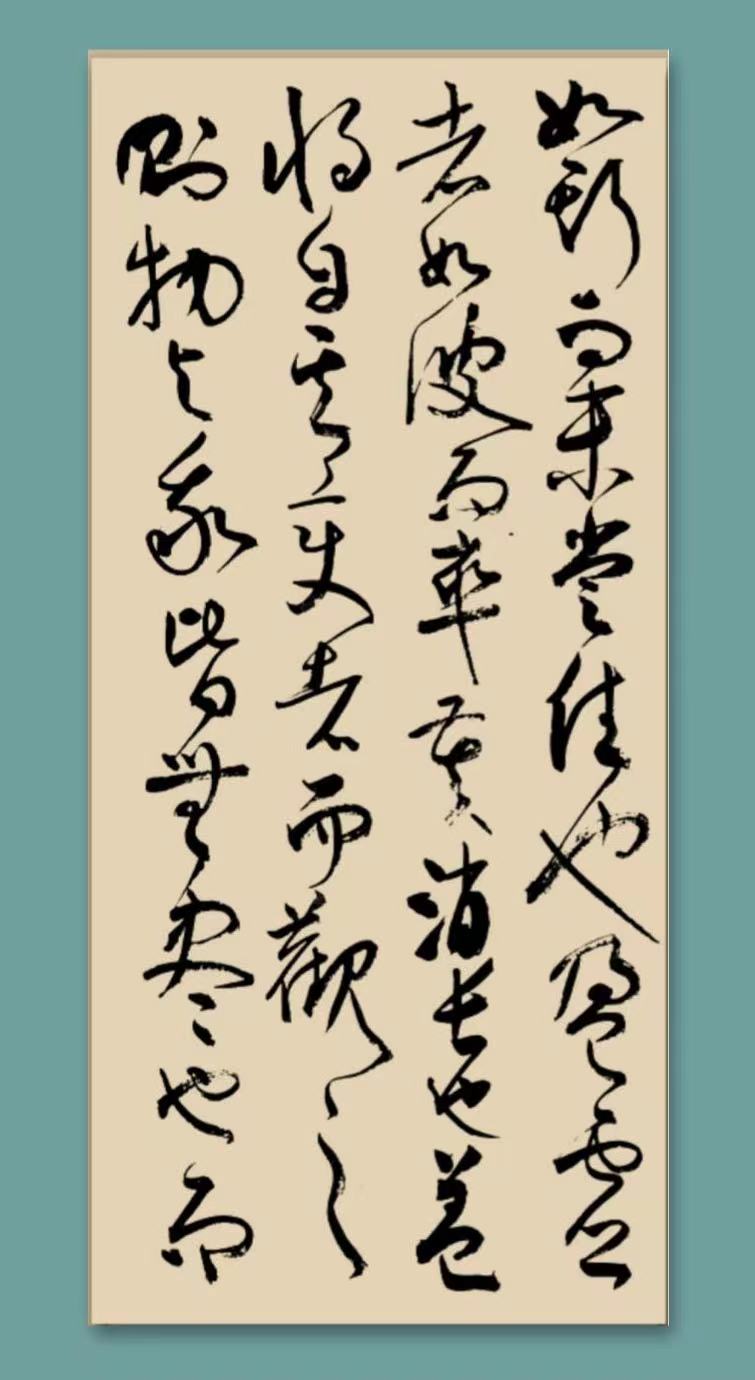 如斯而未嘗往也盈虛
者如彼而卒莫消長也蓋
將自其變者而觀之
則物與我皆無盡也而